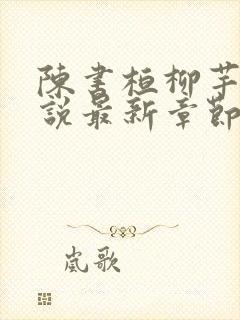 陳書桓柳芊
說最新章節
嵐歌